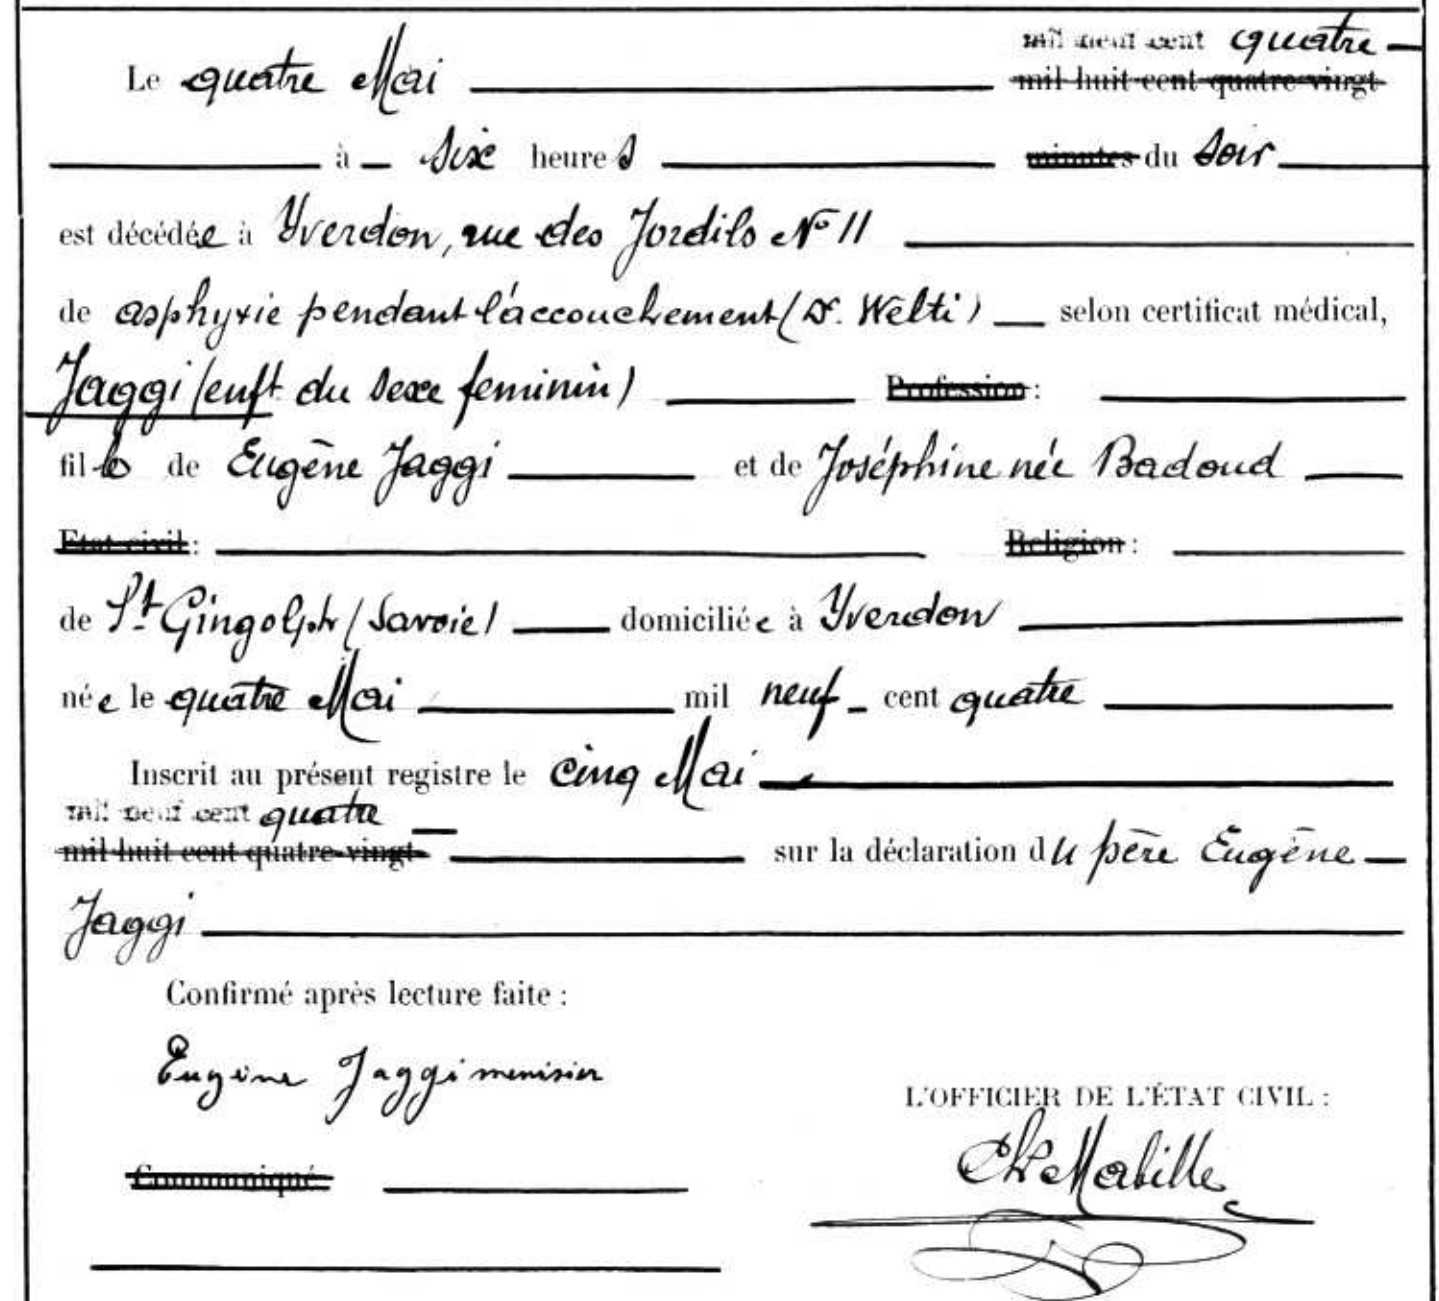 mil neuf cent quatre
Le quatre Mai mil huit cent quatre-vingt
à six heures minutes du soir
est décédée à Yverdon, rue des Jordils No 11
de asphyxie pendant l'accouchement (Dr. Welti) selon certificat médical,
Jaggi (enft du sexe feminin) Profession :
fille de Eugène Jaggi et de Joséphine née Badoud
Etat civil : Religion :
de St Gingolph (Savoie) domiciliée à Yverdon
née le quatre Mai mil neuf cent quatre
Inscrit au présent registre le cinq Mai
mil neuf cent quatre
mil huit cent quatre-vingt sur la déclaration du père Eugène
Jaggi
Confirmé après lecture faite :
Eugène Jaggi menisier
L'OFFICIER DE L'ÉTAT CIVIL :
Ch. Mabille
Communiqué